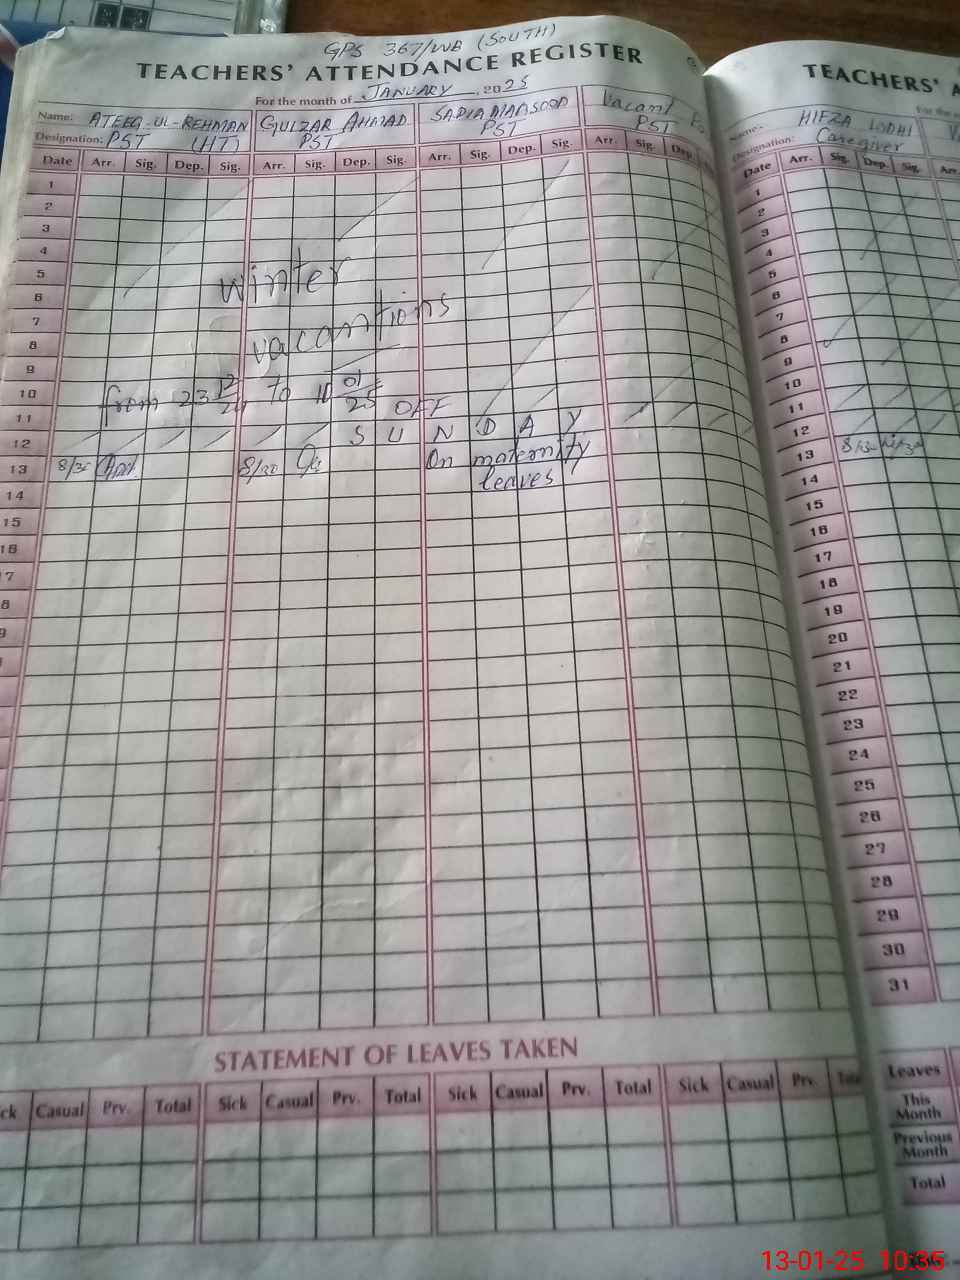 GPS 367/WB (SOUTH)
TEACHERS' ATTENDANCE REGISTER
For the month of JANUARY, 2025
Name: ATEEQ-UL-REHMAN GULZAR AHMAD SADIA MAQSOOD Vacant
Designation: PST (HT) PST PST PST
Date Arr. Sig. Dep. Sig. Arr. Sig. Dep. Sig. Arr. Sig. Dep. Sig. Arr. Sig. Dep.
1
2
3
4
5
6
winter
7
8
vacantions
9
10
from 23 12/24 to 10 01/25
11
OFF
12
S U N D A Y
13 8/30 8/30 On maternity
leaves
14
15
16
17
8
9
STATEMENT OF LEAVES TAKEN
ck Casual Prv. Total Sick Casual Prv. Total Sick Casual Prv. Total Sick Casual Prv. Total
TEACHERS' A
For the
Name: HIFZA LODHI
Designation: Caregiver
Date Arr. Sig. Dep. Sig. Arr.
1
2
3
4
5
6
7
8
9
10
11
12
13 8/30
14
15
16
17
18
19
20
21
22
23
24
25
26
27
28
29
30
31
Leaves
This Month
Previous Month
Total
13-01-25 10:35